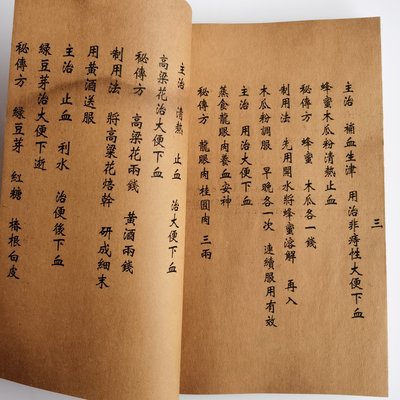 三
主治 補血生津 用治非痔性大便下血
蜂蜜木瓜粉清熱止血
秘傳方 蜂蜜 木瓜各一錢
制用法 先用開水將蜂蜜溶解 再入
木瓜粉調服 早晚各一次 連續服用有效
主治 用治大便下血
蒸食龍眼肉養血安神
秘傳方 龍眼肉桂圓肉 三兩
主治 清熱 止血 治大便下血
高梁花治大便下血
秘傳方 高梁花兩錢 黃酒兩錢
制用法 將高梁花焙幹 研成細末
用黃酒送服
主治 止血 利水 治便後下血
綠豆芽治大便下逝
秘傳方 綠豆芽 紅糖 椿根白皮